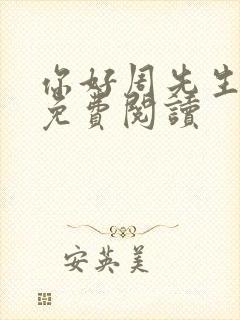 你好周先生
免費閱讀
安英美